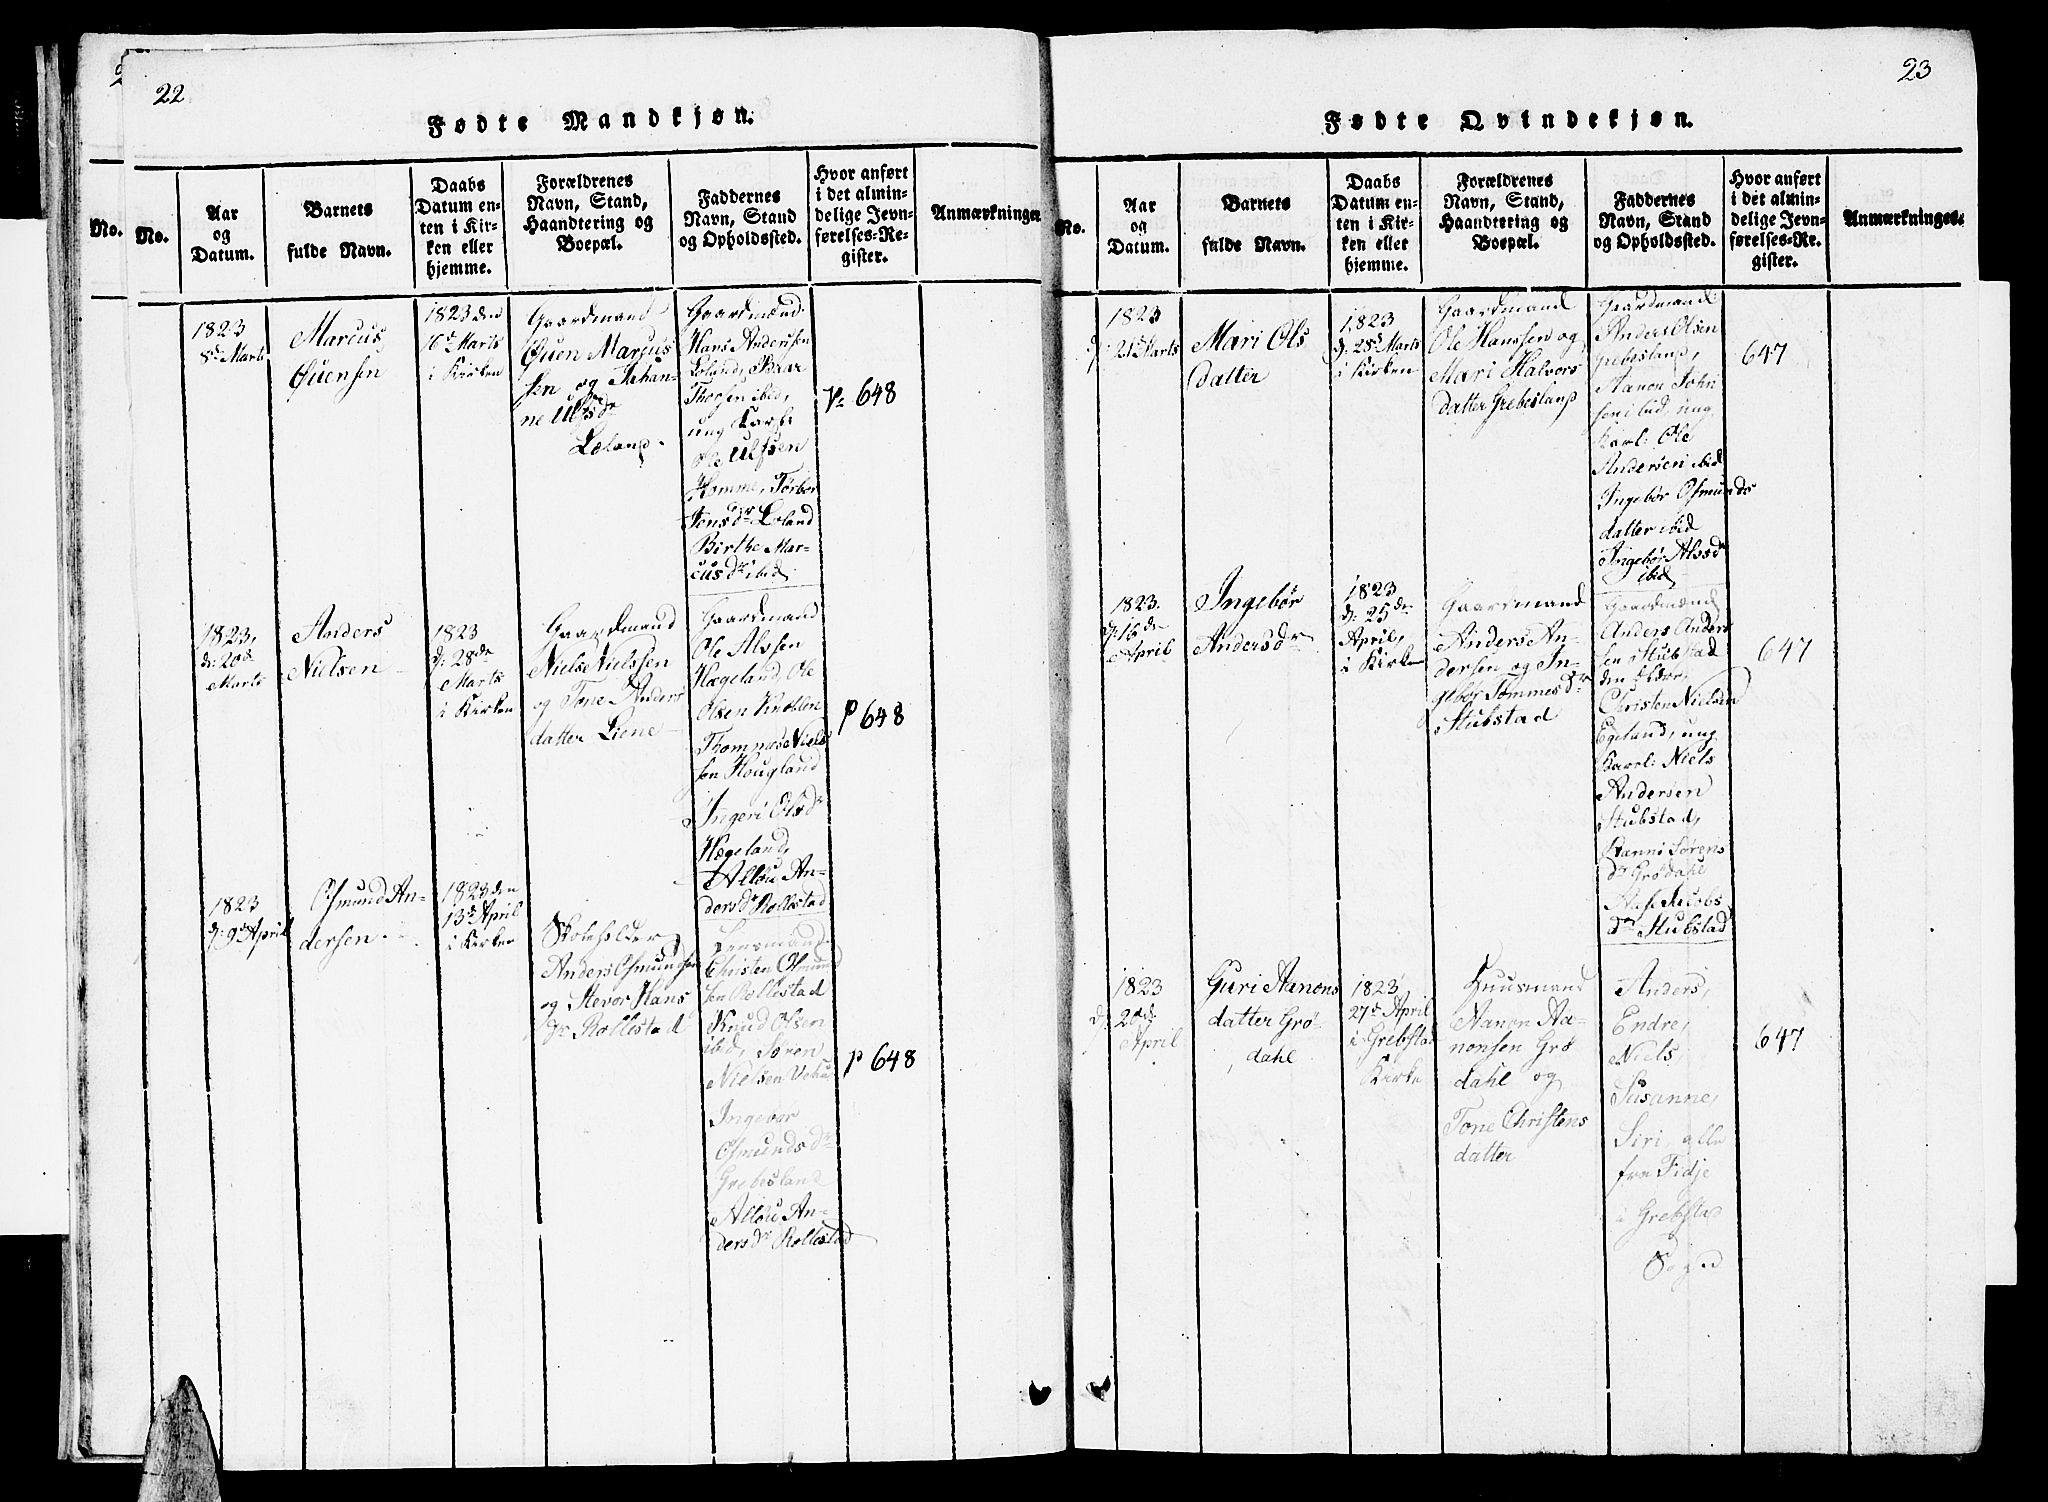 22
Fødte Mandkjøn.
No.
No.
Aar
og
Datum.
Barnets
fulde Navn.
Daabs
Datum en-
ten i Kir-
ken eller
hjemme.
Forældrenes
Navn, Stand,
Haandtering og
Boepæl.
Faddernes
Navn, Stand
og Opholdssted.
Hvor anført
i det almin-
delige Jevn-
førelses-Re-
gister.
Anmærkninger
1823
8d Marts
Marcus
Øuensen
1823 den
16d Marts
i Kirken
Gaardmand
Øuen Marcus
sen og Johan-
ne Ulfsdr
Loland.
Gaardmænd
Hans Andersen
Loland,
Thorsen ibid,
ung Karl:
Ole Ulfsen
Homme, Torbor
Jensdr Loland
Birthe Mar-
cusdr ibid
648
1823,
d: 20de
Marts
Anders
Nielsen
1823
d: 28de
Marts
i Kirken
Gaardmand
Niels Nielssen
og Tone Anders
datter Liene
Gaardmand
Ole Alssen
Hægeland, Ole
Olsen
Thommas Niels
sen Hougland
Ingeri Olsdr
Hægeland,
Allou An-
dersdr Rollestad
p 648
1823
d: 9d April
Osmund An-
dersen
1823 den
13d April
i Kirken
Skoleholder
Anders Osmundsen
og Stevor Hans
dr Rollestad
Lensmand
Christen Osmund
sen Rollestad
Knud Olsen
ibid, Søren
Nielsen
Ingebor
Osmundsdr
Grebesland
Allou An-
dersdr Rollestad
p 648
23
Fødte Qvindekjøn.
No.
Aar
og
Datum.
Barnets
fulde Navn.
Daabs
Datum en-
ten i Kir-
ken eller
hjemme.
Forældrenes
Navn, Stand,
Haandtering og
Boepæl.
Faddernes
Navn, Stand
og Opholdssted.
Hvor anført
i det almin-
delige Jevn-
førelses-Re-
gister.
Anmærkninger.
1823
d: 21d Marts
Mari Ols
datter
1823
d: 28d Marts
i Kirken
Gaardmand
Ole Hanssen og
Mari Halvors
datter Grebesland
Gaardmænd
Anders Olsen
Grebesland,
Aanon John
sen ibid, ung
Karl: Ole
Andersen ibid
Ingebør Osmunds
datter ibid
Ingebør Alssdr
ibid
647
1823.
d: 16de
April
Ingebør
Andersdr
1823
d: 25de
April,
i Kirken
Gaardmand
Anders An-
dersen og In-
gebør Tommesdr
Stubstad
Gaardmænd
Anders Anders
sen Stubstad
den Ældre,
Christen Nielsen
Egeland, ung
Karl: Niels
Andersen
Stubstad,
Ranni Sørens
dr Grødahl
Aase Jacobs
dr Stubstad
647
1823
d: 20de
April
Guri Aanons
datter Grø-
dahl
1823
27d April
i Grebstad
Kirke
Huusmand
Aanon Aa-
nonsen Grø
dahl og
Tone Christens
datter
Anders,
Endre,
Niels,
Susanne,
Siri, alle
fra Fidje
i Grebstad
Sogn
647